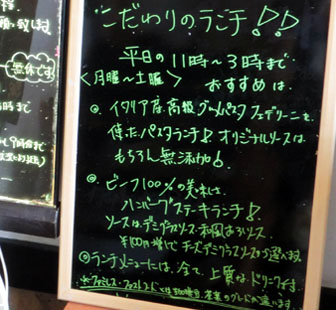 こだわりのランチ!!
平日の11時〜3時まで
<月曜〜土曜> おすすめは
◎イタリア産高級グルメパスタ フェデリーニを
使ったパスタランチ♪ オリジナルソースは
もちろん無添加!
◎ビーフ100%の美味しさ
ハンバーグステーキランチ♪
ソースはデミグラスソース・和風おろソース
¥100円増しで チーズデミグラスソースが選べます
◎ランチメニューには、全て、上質な、ドリンク付き
無休です
時まで